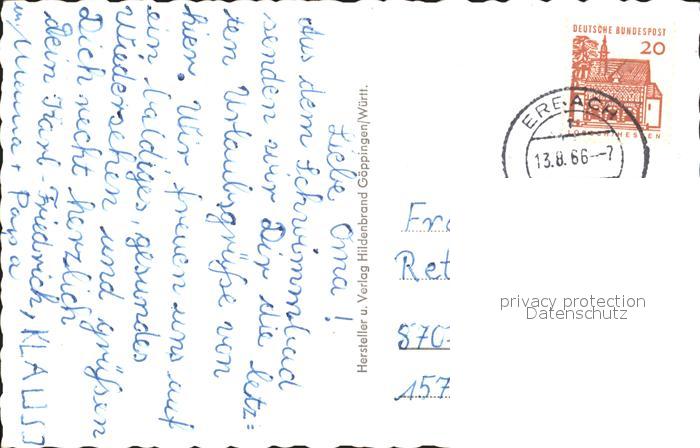 Liebe Oma!
Aus dem Schwimmbad
senden wir Dir die letz=
ten Urlaubsgrüße von
hier. Wir freuen uns auf
ein baldiges, gesundes
Wiedersehen und grüßen
Dich recht herzlich
Dein Karl-Friedrich, KLAUS
Mama + Papa
Hersteller u. Verlag Hildenbrand Göppingen/Württ.
DEUTSCHE BUNDESPOST
20
ERBACH
13.8.66--7
Fr
Ret
870
157
privacy protection
Datenschutz